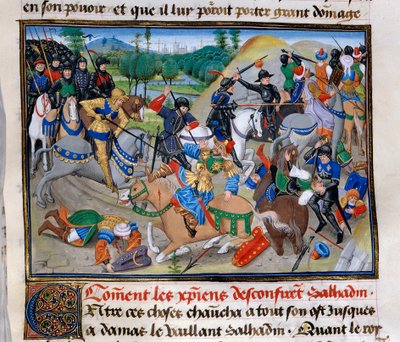 en son pouoir et que il luy poroit porter grant dom̄age
Com̄ent les xp̄iens desconfirēt Salhadin.
Entre ces choses cheuaucha a tout son ost Jusques
a damas le vaillant Salhadin. Quant le roy